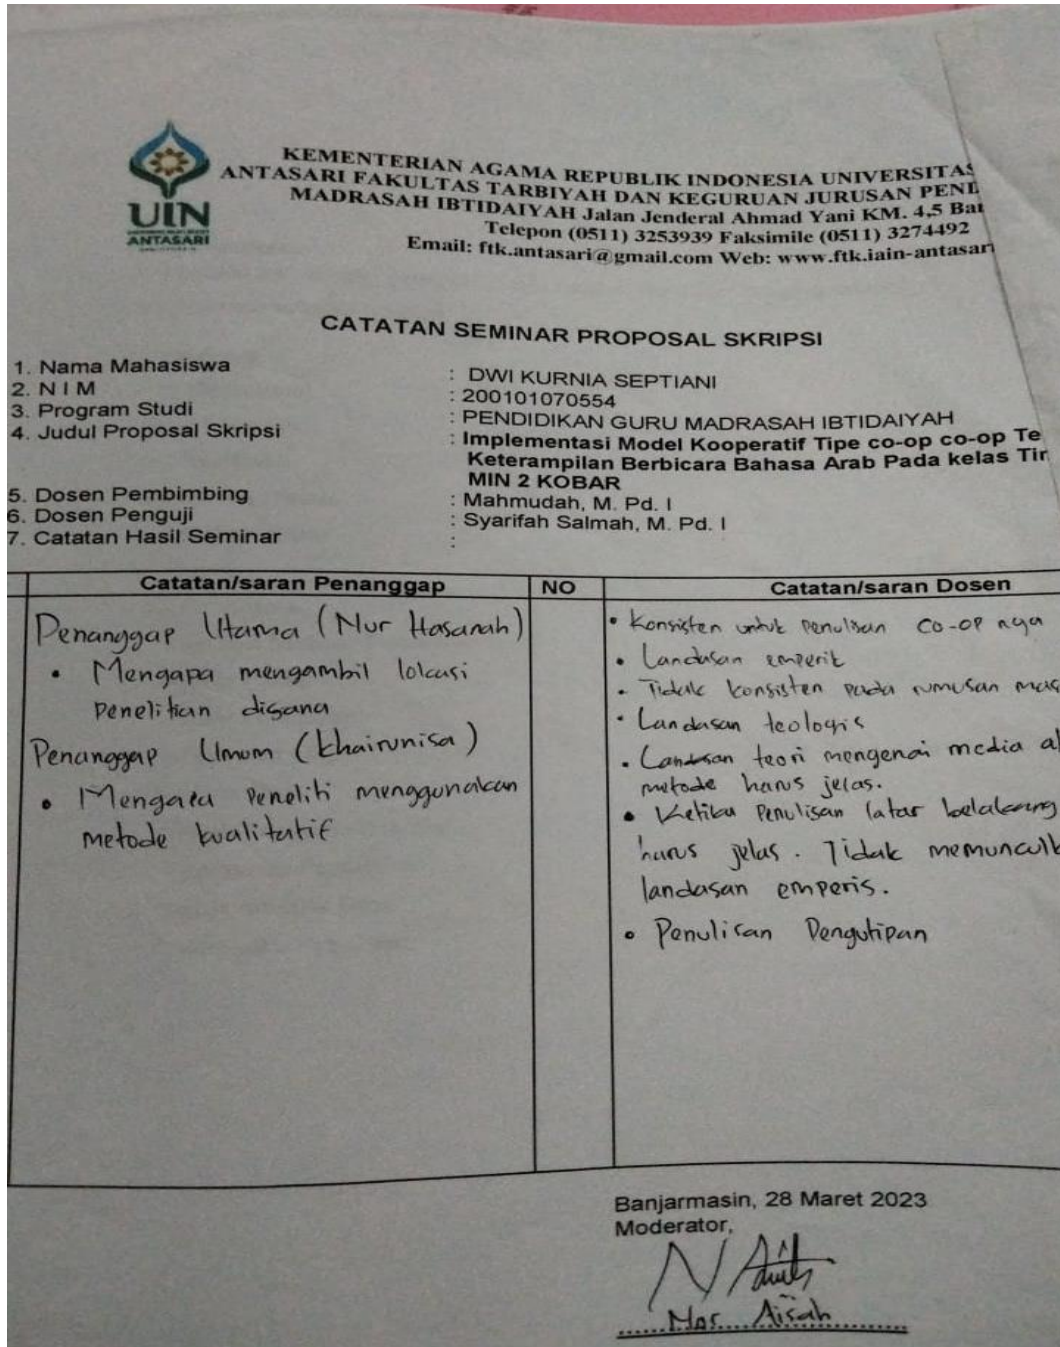 KEMENTERIAN AGAMA REPUBLIK INDONESIA UNIVERSITAS
ANTASARI FAKULTAS TARBIYAH DAN KEGURUAN JURUSAN PEND
MADRASAH IBTIDAIYAH Jalan Jenderal Ahmad Yani KM. 4,5 Ba
Telepon (0511) 3253939 Faksimile (0511) 3274492
Email: ftk.antasari@gmail.com Web: www.ftk.iain-antasari
UIN
ANTASARI
CATATAN SEMINAR PROPOSAL SKRIPSI
1. Nama Mahasiswa : DWI KURNIA SEPTIANI
2. N I M : 200101070554
3. Program Studi : PENDIDIKAN GURU MADRASAH IBTIDAIYAH
4. Judul Proposal Skripsi : Implementasi Model Kooperatif Tipe co-op co-op Te
Keterampilan Berbicara Bahasa Arab Pada kelas Tin
MIN 2 KOBAR
5. Dosen Pembimbing : Mahmudah, M. Pd. I
6. Dosen Penguji : Syarifah Salmah, M. Pd. I
7. Catatan Hasil Seminar :
Catatan/saran Penanggap NO Catatan/saran Dosen
Penanggap Utama (Nur Hasanah)
• Mengapa mengambil lokasi
penelitian disana
Penanggap Umum (khairunisa)
• Mengapa Peneliti menggunakan
metode kualitatif
• Konsisten untuk penulisan co-op nya
• Landasan emperik
• Tidak konsisten pada rumusan mas
• Landasan teologis
• Landasan teori mengenai media a
metode harus jelas.
• Ketika Penulisan latar belakang
harus jelas. Tidak memunculk
landasan emperis.
• Penulisan Pengutipan
Banjarmasin, 28 Maret 2023
Moderator,
Nor Aisah